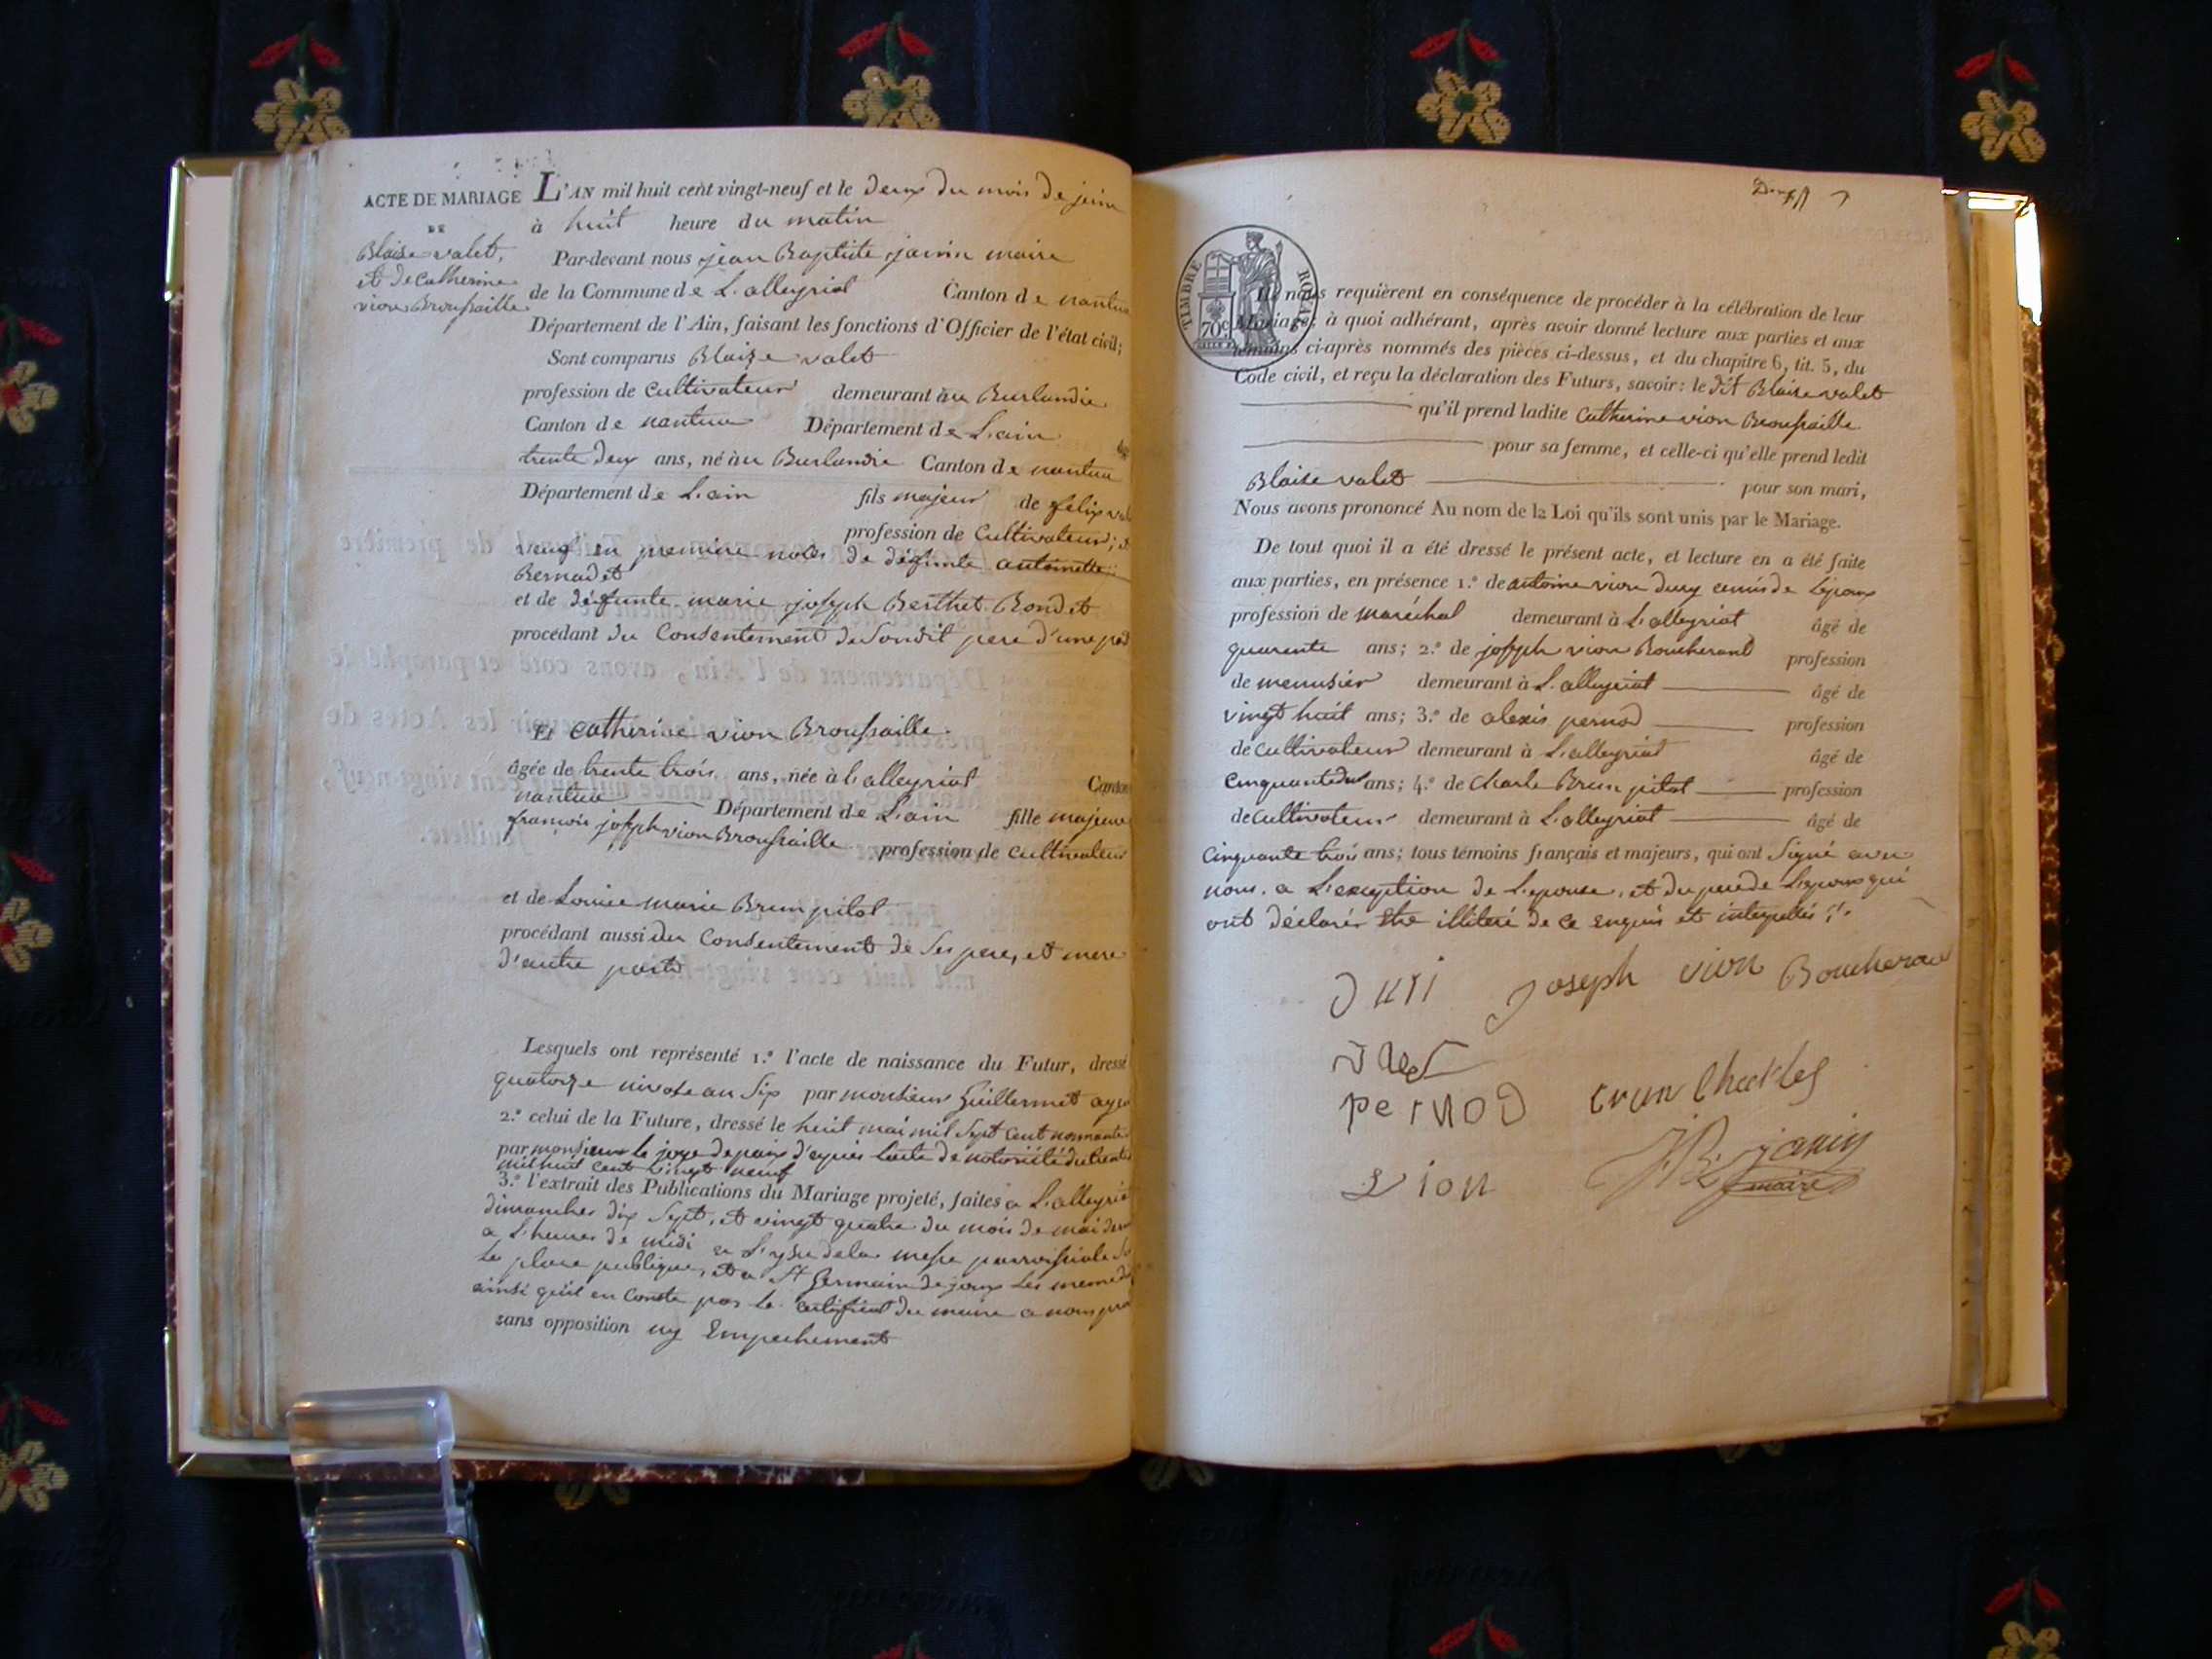 ACTE DE MARIAGE
DE
Blaise valet,
et de catherine
vion Broussaille
L'AN mil huit cent vingt-neuf et le deux du mois de juin
à huit heure du matin
Par-devant nous jean Baptiste janin maire
de la Commune de L'alleyriat Canton de nantua
Département de l'Ain, faisant les fonctions d'Officier de l'état civil;
Sont comparus Blaise valet
profession de cultivateur demeurant au Burlandie
Canton de nantua Département de L'ain
trente deux ans, né au Burlandie Canton de nantua
Département de L'ain fils majeur de felix
profession de Cultivateur; et
veuf en premiere noces de défunte antoinette
Bernadet
et de défunte marie joseph Berthet Rondet
procédant du Consentement de Sondit pere d'une part
Et catherine vion Broussaille
âgée de trente trois ans, née à l'alleyriat Canton
nantua Département de L'ain fille majeure
françois joseph vion Broussaille profession de cultivateur
et de Louise marie Brun pitot
procédant aussi du Consentement de Ses pere, et mere
d'autre part
Lesquels ont représenté 1.º l'acte de naissance du Futur, dressé
quatorze nivose an Six par monsieur Guillermet
2.º celui de la Future, dressé le huit mai mil Sept cent nonante
par monsieur le juge de paix d'après l'acte de notoriété du trente
mil huit cent vingt neuf
3.º l'extrait des Publications du Mariage projeté, faites a L'alleyriat
dimanches dix Sept, et vingt quatre du mois de mai
a L'heure de midi a L'issue de la messe parroissiale
la place publique, et a St Germain de joux les meme
ainsi qu'il en Conste par le certificat du maire a nous
sans opposition ny Empechement
TIMBRE ROYAL
70c
Ils nous requièrent en conséquence de procéder à la célébration de leur
Mariage; à quoi adhérant, après avoir donné lecture aux parties et aux
témoins ci-après nommés des pièces ci-dessus, et du chapitre 6, tit. 5, du
Code civil, et reçu la déclaration des Futurs, savoir: le dit Blaise valet
qu'il prend ladite Catherine vion Broussaille
pour sa femme, et celle-ci qu'elle prend ledit
Blaise valet pour son mari,
Nous avons prononcé Au nom de la Loi qu'ils sont unis par le Mariage.
De tout quoi il a été dressé le présent acte, et lecture en a été faite
aux parties, en présence 1.º de antoine vion dury amis de L'époux
profession de maréchal demeurant à L'alleyriat âgé de
quarente ans; 2.º de joseph vion Boucherand profession
de menusier demeurant à L'alleyriat âgé de
vingt huit ans; 3.º de alexis pernod profession
de cultivateur demeurant à L'alleyriat âgé de
cinquante deux ans; 4.º de Charle Brun pitot profession
de cultivateur demeurant à L'alleyriat âgé de
Cinquante trois ans; tous témoins français et majeurs, qui ont Signé avec
nous. a L'exception de L'epouse, et du pere de L'epoux qui
ont déclarés etre illiteré de ce enquis et interpellés
Duri Joseph vion Boucheran
perNOD brun Charles
vion J. B. janin
maire